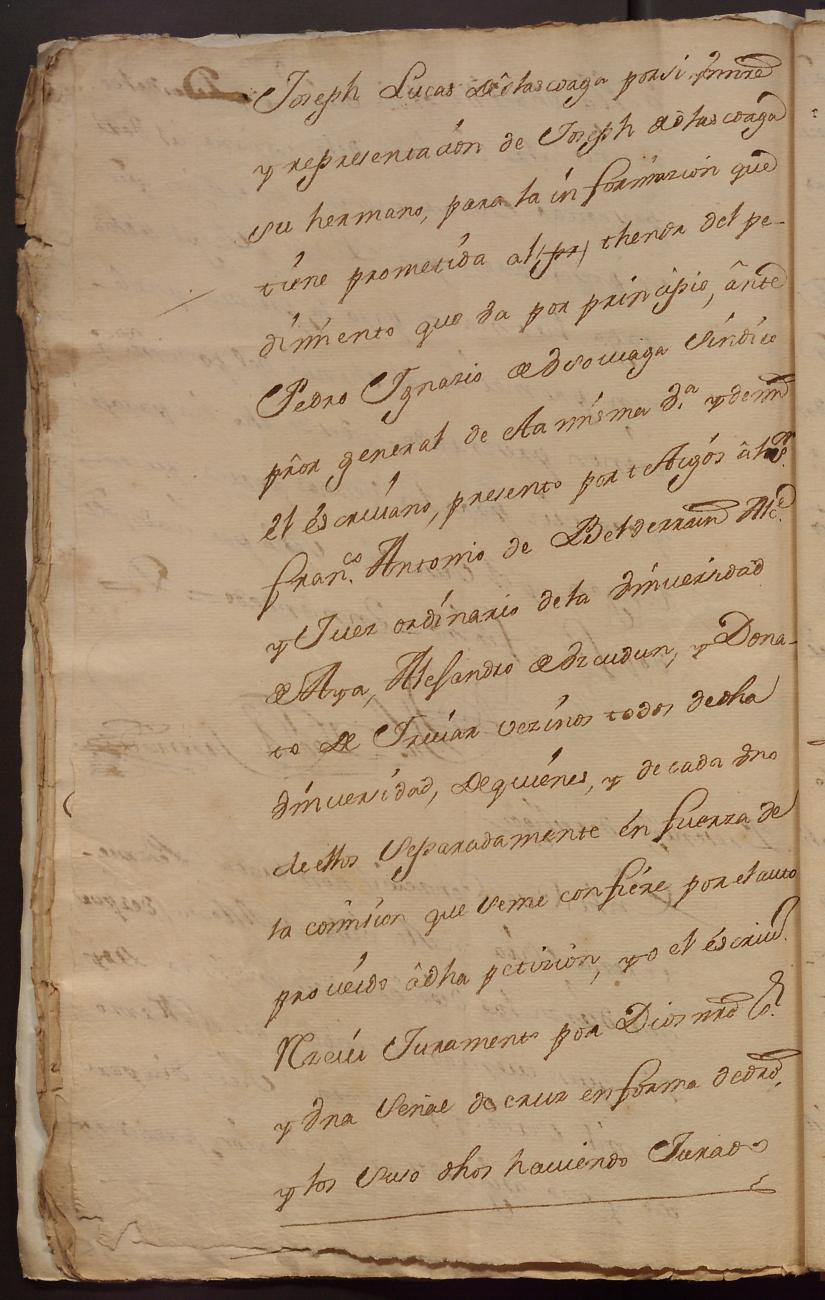 Joseph Lucas de Olascoaga por si, en nre
y representacion de Joseph de Olascoaga
su hermano, para la informazion que
tiene prometida al (pr) thenor del pe-
dimiento que da por principio, ante
Pedro Ignazio de Sindico
prôr general de sta misma d.ª y de mi
el escrivano, presento por testigos â los
Fran.co Antonio de Belderrain Alc.e
y Juez ordinario de la Vniversidad
de Aya, Alejandro de Izcudun, y Dona-
to de Irruar vezinos todos de dha
Vniversidad, de quienes, y de cada Vno
de ellos Separadamente en fuerza de
la comision que se me confiere por el auto
proveido â dha petizion, yo el escriv.
Rezevi Juramento por Dios nro S.
y Vna Señal de cruz en forma de dro,
y los Suso dhos haviendo Jurado